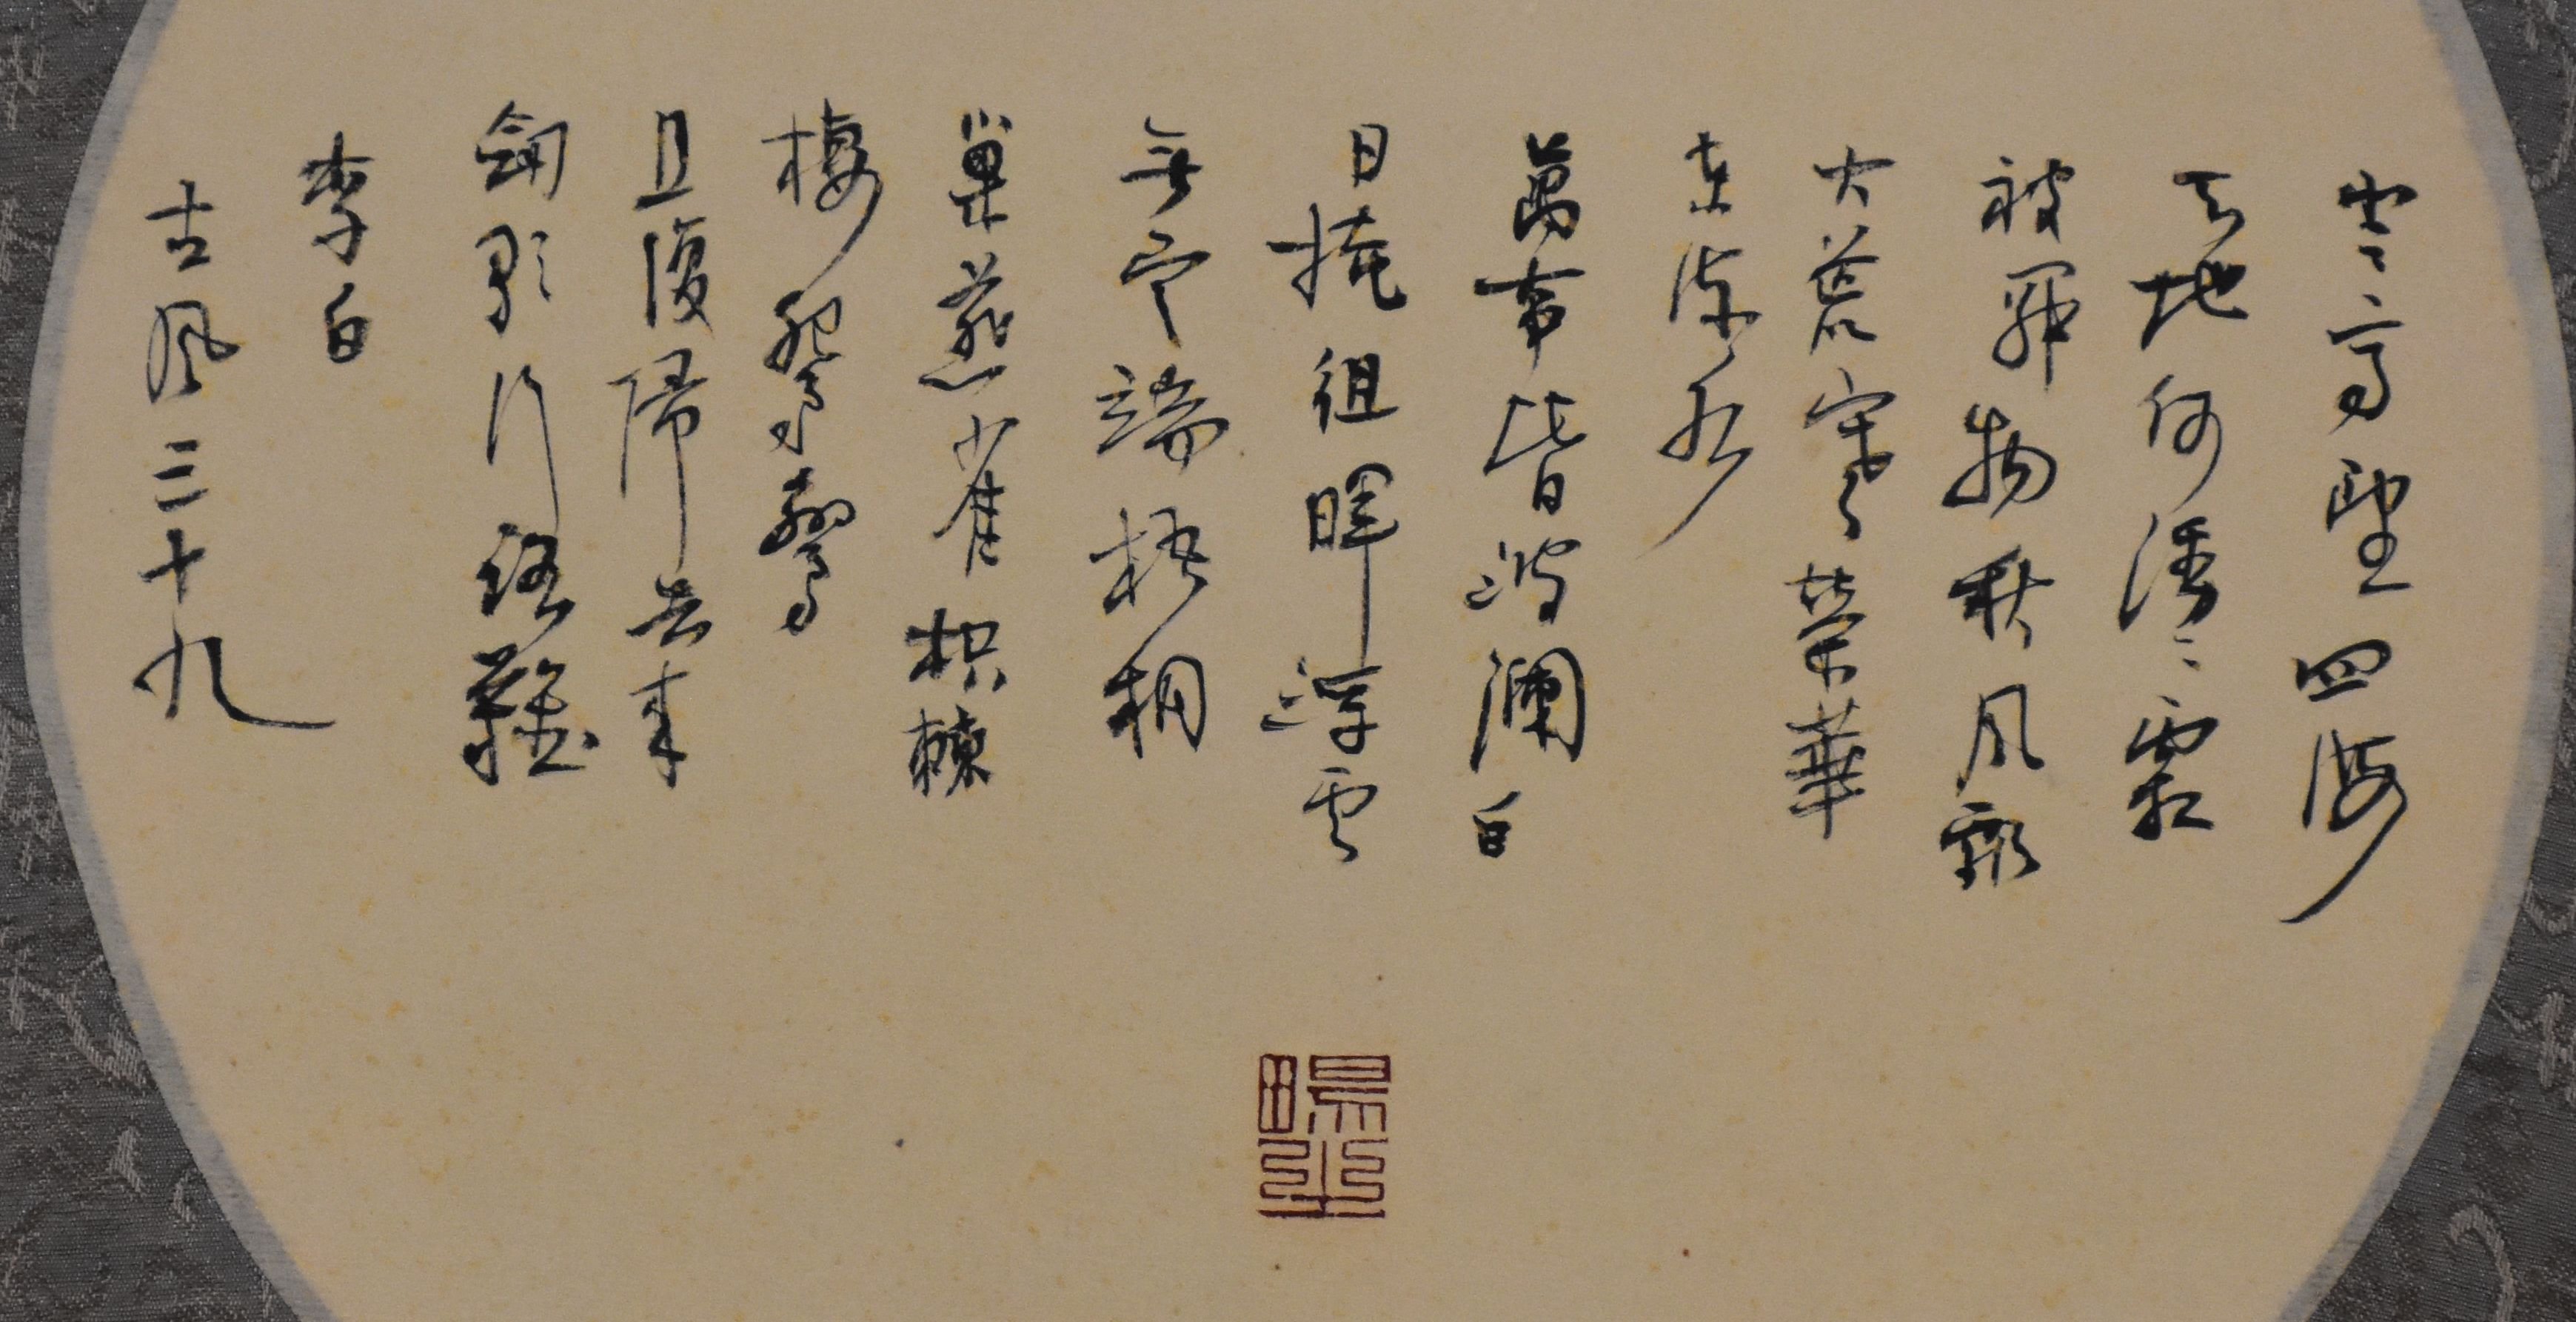 登高望四海
天地何漫〻霜
被群物秋風飄
大荒寒榮華
東流水
萬事皆波瀾白
日掩徂暉浮雲
無定端梧桐
巢燕雀枳棘
棲鴛鸞
且復歸去來
劍歌行路難
李白
古風三十九